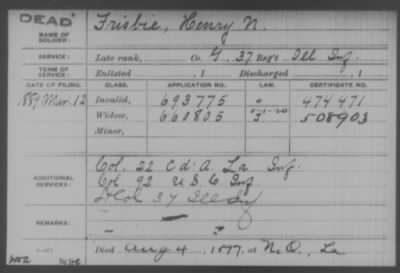 DEAD
NAME OF SOLDIER: Frisbie, Henry N.
SERVICE: Late rank, Co. G, 37 Reg't Ill Inf.
TERM OF SERVICE: Enlisted , 1 Discharged , 1
DATE OF FILING. CLASS. APPLICATION NO. LAW. CERTIFICATE NO.
1889 Mar. 12 Invalid, 693775 474471
Widow, 660805 508903
Minor,
ADDITIONAL SERVICES: Col. 22 Cd'A La Inf.
Col 92 U S C Inf.
37 Ill Inf
REMARKS:
Died Aug 4, 1897, at N.O., La